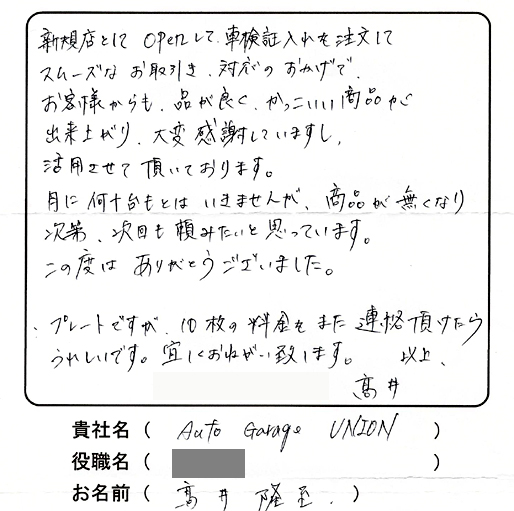 新規店としてOpenして、車検証入れを注文して
スムーズなお取引き、対応のおかげで、
お客様からも、品が良く、かっこいい商品が
出来上がり、大変感謝していますし、
活用させて頂いております。
月に何十台もとはいきませんが、商品が無くなり
次第、次回も頼みたいと思っています。
この度はありがとうございました。
プレートですが、10枚の料金をまた連絡頂けたら
うれしいです。宜しくおねがい致します。 以上、
髙井
貴社名 ( Auto Garage UNION )
役職名 ( )
お名前 ( 髙井 隆 )